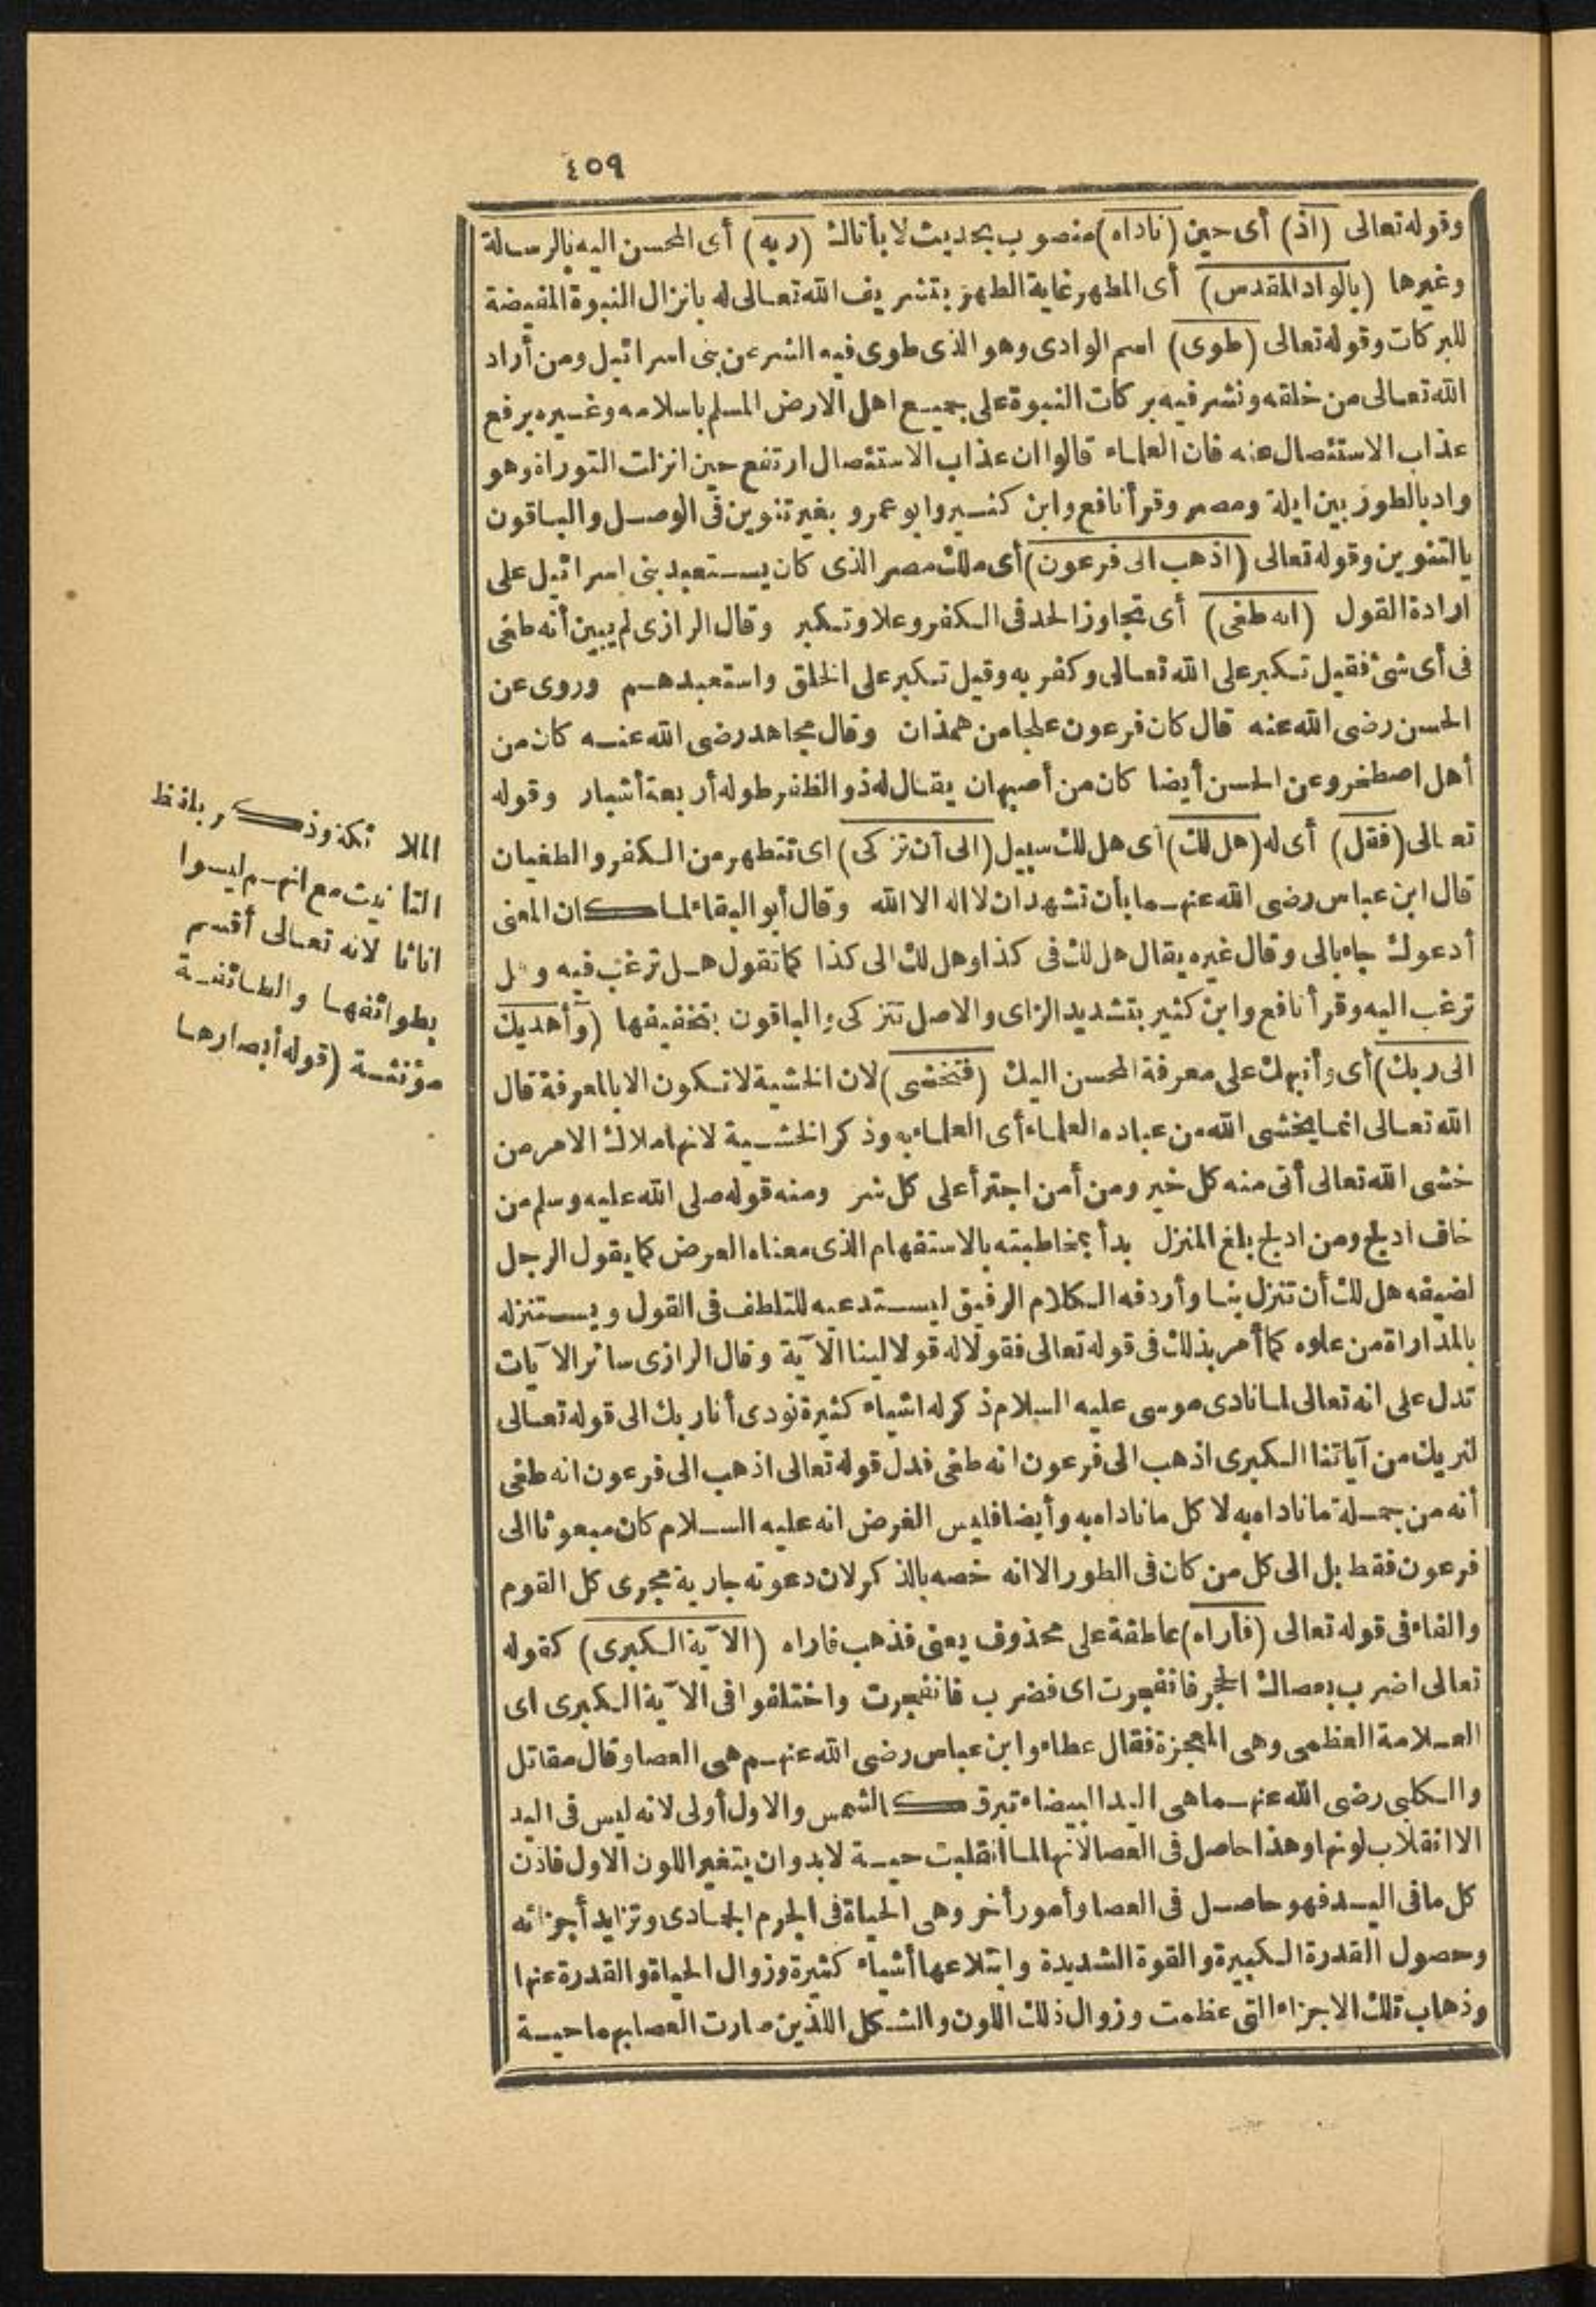 ٤٥٩
وقوله تعالى (اذ) أى حين (ناداه) منصوب بحديث لا بأتاك (ربه) أى المحسن اليه بالرسالة
وغيرها (بالواد المقدس) أى المطهر غاية الطهر بتشريف الله تعالى له بانزال النبوة المفيضة
للبركات وقوله تعالى (طوى) اسم الوادى وهو الذى طوى فيه الشر عن بنى اسرائيل ومن أراد
الله تعالى من خلقه ونشر فيه بركات النبوة على جميع اهل الارض المسلم باسلامه وغيره برفع
عذاب الاستئصال عنه فان العلماء قالوا ان عذاب الاستئصال ارتفع حين انزلت التوراة وهو
واد بالطور بين ايلة ومصر وقرأ نافع وابن كثير وابو عمرو بغير تنوين فى الوصل والباقون
بالتنوين وقوله تعالى (اذهب الى فرعون) أى ملك مصر الذى كان يستعبد بنى اسرائيل على
ارادة القول (انه طغى) أى تجاوز الحد فى الكفر وعلا وتكبر وقال الرازى لم يبين أنه طغى
فى أى شئ فقيل تكبر على الله تعالى وكفر به وقيل تكبر على الخلق واستعبدهم وروى عن
الحسن رضى الله عنه قال كان فرعون علجا من همذان وقال مجاهد رضى الله عنه كان من
أهل اصطخر وعن الحسن أيضا كان من أصبهان يقال له ذو الظفر طوله أربعة أشبار وقوله
تعالى (فقل) أى له (هل لك) أى هل لك سبيل (الى أن تزكى) اى تتطهر من الكفر والطغيان
قال ابن عباس رضى الله عنهما بأن تشهد ان لا اله الا الله وقال أبو البقاء لما كان المعنى
أدعوك جاء بالى وقال غيره يقال هل لك فى كذا وهل لك الى كذا كما تقول هل ترغب فيه وهل
ترغب اليه وقرأ نافع وابن كثير بتشديد الزاى والاصل تتزكى والباقون بتخفيفها (وأهديك
الى ربك) أى وأنبهك على معرفة المحسن اليك (فتخشى) لان الخشية لا تكون الا بالمعرفة قال
الله تعالى انما يخشى الله من عباده العلماء أى العلماء به وذكر الخشية لانها ملاك الامر من
خشى الله تعالى أتى منه كل خير ومن أمن اجترأ على كل شر ومنه قوله صلى الله عليه وسلم من
خاف ادلج ومن ادلج بلغ المنزل بدأ بمخاطبته بالاستفهام الذى معناه العرض كما يقول الرجل
لضيفه هل لك أن تنزل بنا وأردفه الكلام الرفيق ليستدعيه للتلطف فى القول ويستنزله
بالمداراة من علوه كما أمر بذلك فى قوله تعالى فقولا له قولا لينا الآية وقال الرازى سائر الآيات
تدل على انه تعالى لما نادى موسى عليه السلام ذكر له اشياء كثيرة نودى أنا ربك الى قوله تعالى
لنريك من آياتنا الكبرى اذهب الى فرعون انه طغى فدل قوله تعالى اذهب الى فرعون انه طغى
أنه من جملة ما ناداه به لا كل ما ناداه به وأيضا فليس الغرض انه عليه السلام كان مبعوثا الى
فرعون فقط بل الى كل من كان فى الطور الا انه خصه بالذكر لان دعوته جارية مجرى كل القوم
والفاء فى قوله تعالى (فأراه) عاطفة على محذوف يعنى فذهب فاراه (الآية الكبرى) كقوله
تعالى اضرب بعصاك الحجر فانفجرت اى فضرب فانفجرت واختلفوا فى الآية الكبرى اى
العلامة العظمى وهى المعجزة فقال عطاء وابن عباس رضى الله عنهم هى العصا وقال مقاتل
والكلبى رضى الله عنهما هى اليد البيضاء تبرق كالشمس والاول أولى لانه ليس فى اليد
الا انقلاب لونها وهذا حاصل فى العصا لانها لما انقلبت حية لا بد وان يتغير اللون الاول فاذن
كل ما فى اليد فهو حاصل فى العصا وأمور أخر وهى الحياة فى الجرم الجمادى وتزايد أجزائه
وحصول القدرة الكبيرة والقوة الشديدة وابتلاعها أشياء كثيرة وزوال الحياة والقدرة عنها
وذهاب تلك الاجزاء التى عظمت وزوال ذلك اللون والشكل اللذين صارت العصا بهما حية
الملائكة وذكر بلفظ
التأنيث مع انهم ليسوا
اناثا لانه تعالى أقسم
بطوائفها والطائفة
مؤنثة (قوله أبصارها